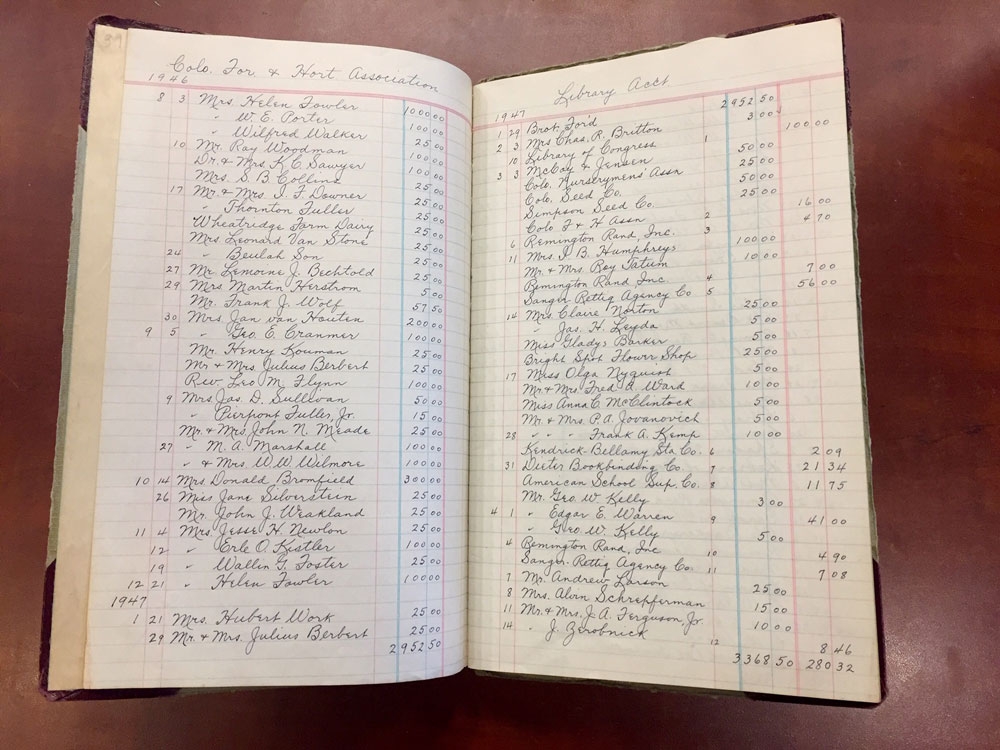 39
Colo. For. & Hort. Association
1946
8 3 Mrs. Helen Fowler 100 00
" W. E. Porter 10 00
" Wilfred Walker 10 00
10 Mr. Ray Woodman 25 00
Dr. & Mrs. K. C. Sawyer 10 00
Mrs. S. B. Collins 10 00
17 Mr. & Mrs. I. F. Downer 25 00
" Thornton Fuller 25 00
Wheatridge Farm Dairy 25 00
Mrs Leonard Van Stone 25 00
24 " Beulah Son 25 00
27 Mr. Lemoine J. Bechtold 25 00
29 Mrs Martin Herstrom 5 00
Mr. Frank J. Wolf 57 50
30 Mrs. Jan van Houten 200 00
9 5 " Geo. E. Cranmer 100 00
Mr. Henry Kouman 25 00
Mr & Mrs Julius Berbert 25 00
Rev. Leo M. Flynn 10 00
9 Mrs Jas. D. Sullivan 50 00
" Pierpont Fuller, Jr. 15 00
Mr. & Mrs. John N. Meade 25 00
27 " M. A. Marshall 100 00
" & Mrs. W. W. Wilmore 100 00
10 14 Mrs. Donald Bromfield 300 00
26 Miss Jane Silverstein 25 00
Mr. John J. Weakland 25 00
11 4 Mrs. Jesse H. Newlon 25 00
12 " Erle O. Kistler 10 00
19 " Wallin G. Foster 25 00
12 21 " Helen Fowler 100 00
1947
1 21 Mrs. Hubert Work 25 00
29 Mr. & Mrs. Julius Berbert 25 00
2952 50
Library Acct
1947 2952 50
1 29 Brot. Ford 3 00
2 3 Mrs Chas. R. Britton 100 00
10 Library of Congress 1
3 3 McCoy & Jensen 50 00
Colo. Nurserymens' Assn 25 00
Colo. Seed Co. 50 00
Simpson Seed Co. 25 00
Colo F & H Assn 2 16 00
6 Remington Rand, Inc. 3 4 70
11 Mrs. I. B. Humphreys 100 00
Mr. & Mrs. Roy Tatum 10 00
Remington Rand Inc 4 7 00
Sanger-Rettig Agency Co 5 56 00
14 Mrs Claire Norton 25 00
" Jas. H. Leyda 5 00
Miss Gladys Barker 5 00
Bright Spot Flower Shop 25 00
17 Miss Olga Nyquist 5 00
Mr. & Mrs. Fred R. Ward 10 00
Miss Anna C. McClintock 5 00
Mr. & Mrs. P. A. Jovanovich 5 00
28 " " " Frank A. Kemp 10 00
Kendrick-Bellamy Sta. Co. 6 2 09
31 Dieter Bookbinding Co. 7 21 34
American School Sup. Co. 8 11 75
Mr. Geo. W. Kelly 3 00
4 1 " Edgar E. Warren 9 41 00
" Geo. W. Kelly 5 00
4 Remington Rand, Inc 10 4 90
Sanger-Rettig Agency Co. 11 7 08
7 Mr. Andrew Larson
8 Mrs. Alvin Schrepferman 25 00
11 Mr. & Mrs. J. A. Ferguson, Jr 15 00
14 " J. Zerobnick 10 00
12 8 46
3368 50 280 32